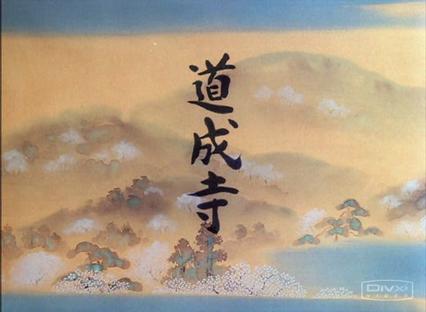 道成寺
DivX
VIDEO